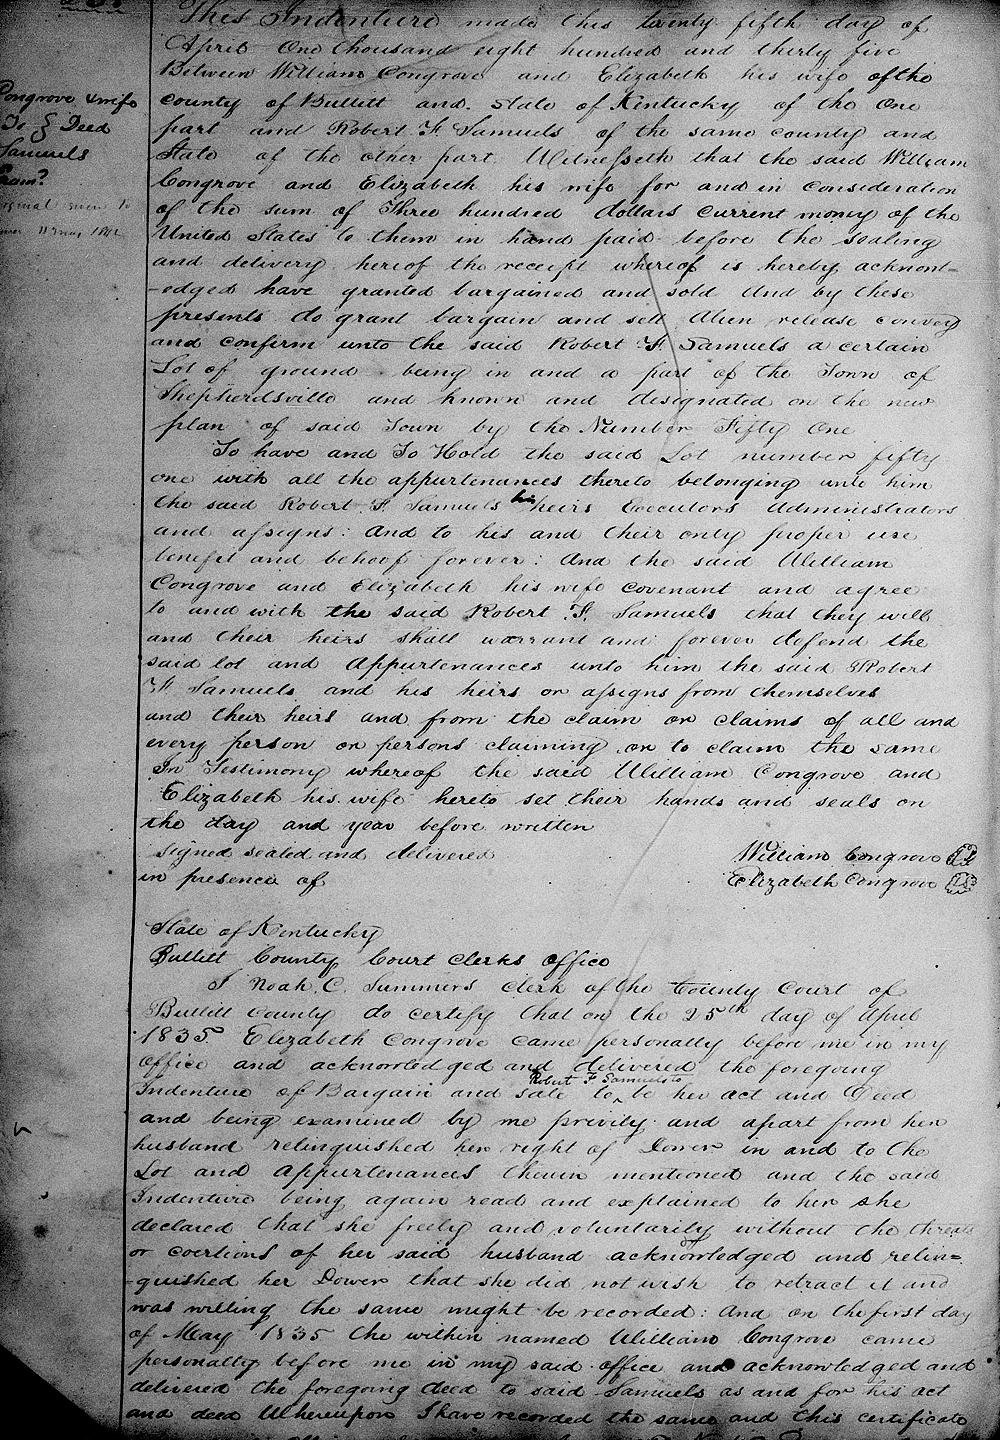 This Indenture made this twenty fifth day of
April One thousand eight hundred and thirty five
Between William Congrove and Elizabeth his wife of the
county of Bullitt and State of Kentucky of the one
part and Robert F. Samuels of the same county and
State of the other part Witnesseth that the said William
Congrove and Elizabeth his wife for and in consideration
of the sum of Three hundred dollars current money of the
United States to them in hand paid before the sealing
and delivery hereof the receipt whereof is hereby acknowl-
-edged have granted bargained and sold And by these
presents do grant bargain and sell Alien release convey
and confirm unto the said Robert F. Samuels a certain
Lot of ground being in and a part of the Town of
Shepherdsville and known and designated on the new
plan of said Town by the Number Fifty One
To have and To Hold the said Lot number fifty
one with all the appurtenances thereto belonging unto him
the said Robert F. Samuels his heirs Executors Administrators
and assigns: And to his and their only proper use
benefit and behoof forever: And the said William
Congrove and Elizabeth his wife covenant and agree
to and with the said Robert F. Samuels that they will
and their heirs shall warrant and forever defend the
said lot and Appurtenances unto him the said Robert
F. Samuels and his heirs or assigns from themselves
and their heirs and from the claim or claims of all and
every person or persons claiming or to claim the same
In Testimony whereof the said William Congrove and
Elizabeth his wife hereto set their hands and seals on
the day and year before written
Signed sealed and delivered
in presence of
William Congrove
Elizabeth Congrove
State of Kentucky
Bullitt County Court Clerks office
I Noah C. Summers clerk of the County Court of
Bullitt County do certify that on the 25th day of April
1835 Elizabeth Congrove came personally before me in my
office and acknowledged and delivered the foregoing
Indenture of Bargain and sale to Robert F Samuels to be her act and Deed
and being examined by me privily and apart from her
husband relinquished her right of Dower in and to the
Lot and Appurtenances therein mentioned and the said
Indenture being again read and explained to her she
declared that she freely and voluntarily without the threats
or coertions of her said husband acknowledged and relin=
-quished her Dower that she did not wish to retract it and
was willing the same might be recorded: And on the first day
of May 1835 the within named William Congrove came
personally before me in my said office and acknowledged and
delivered the foregoing deed to said Samuels as and for his act
and deed Whereupon I have recorded the same and this certificate
Congrove & wife
To } Deed
Samuels